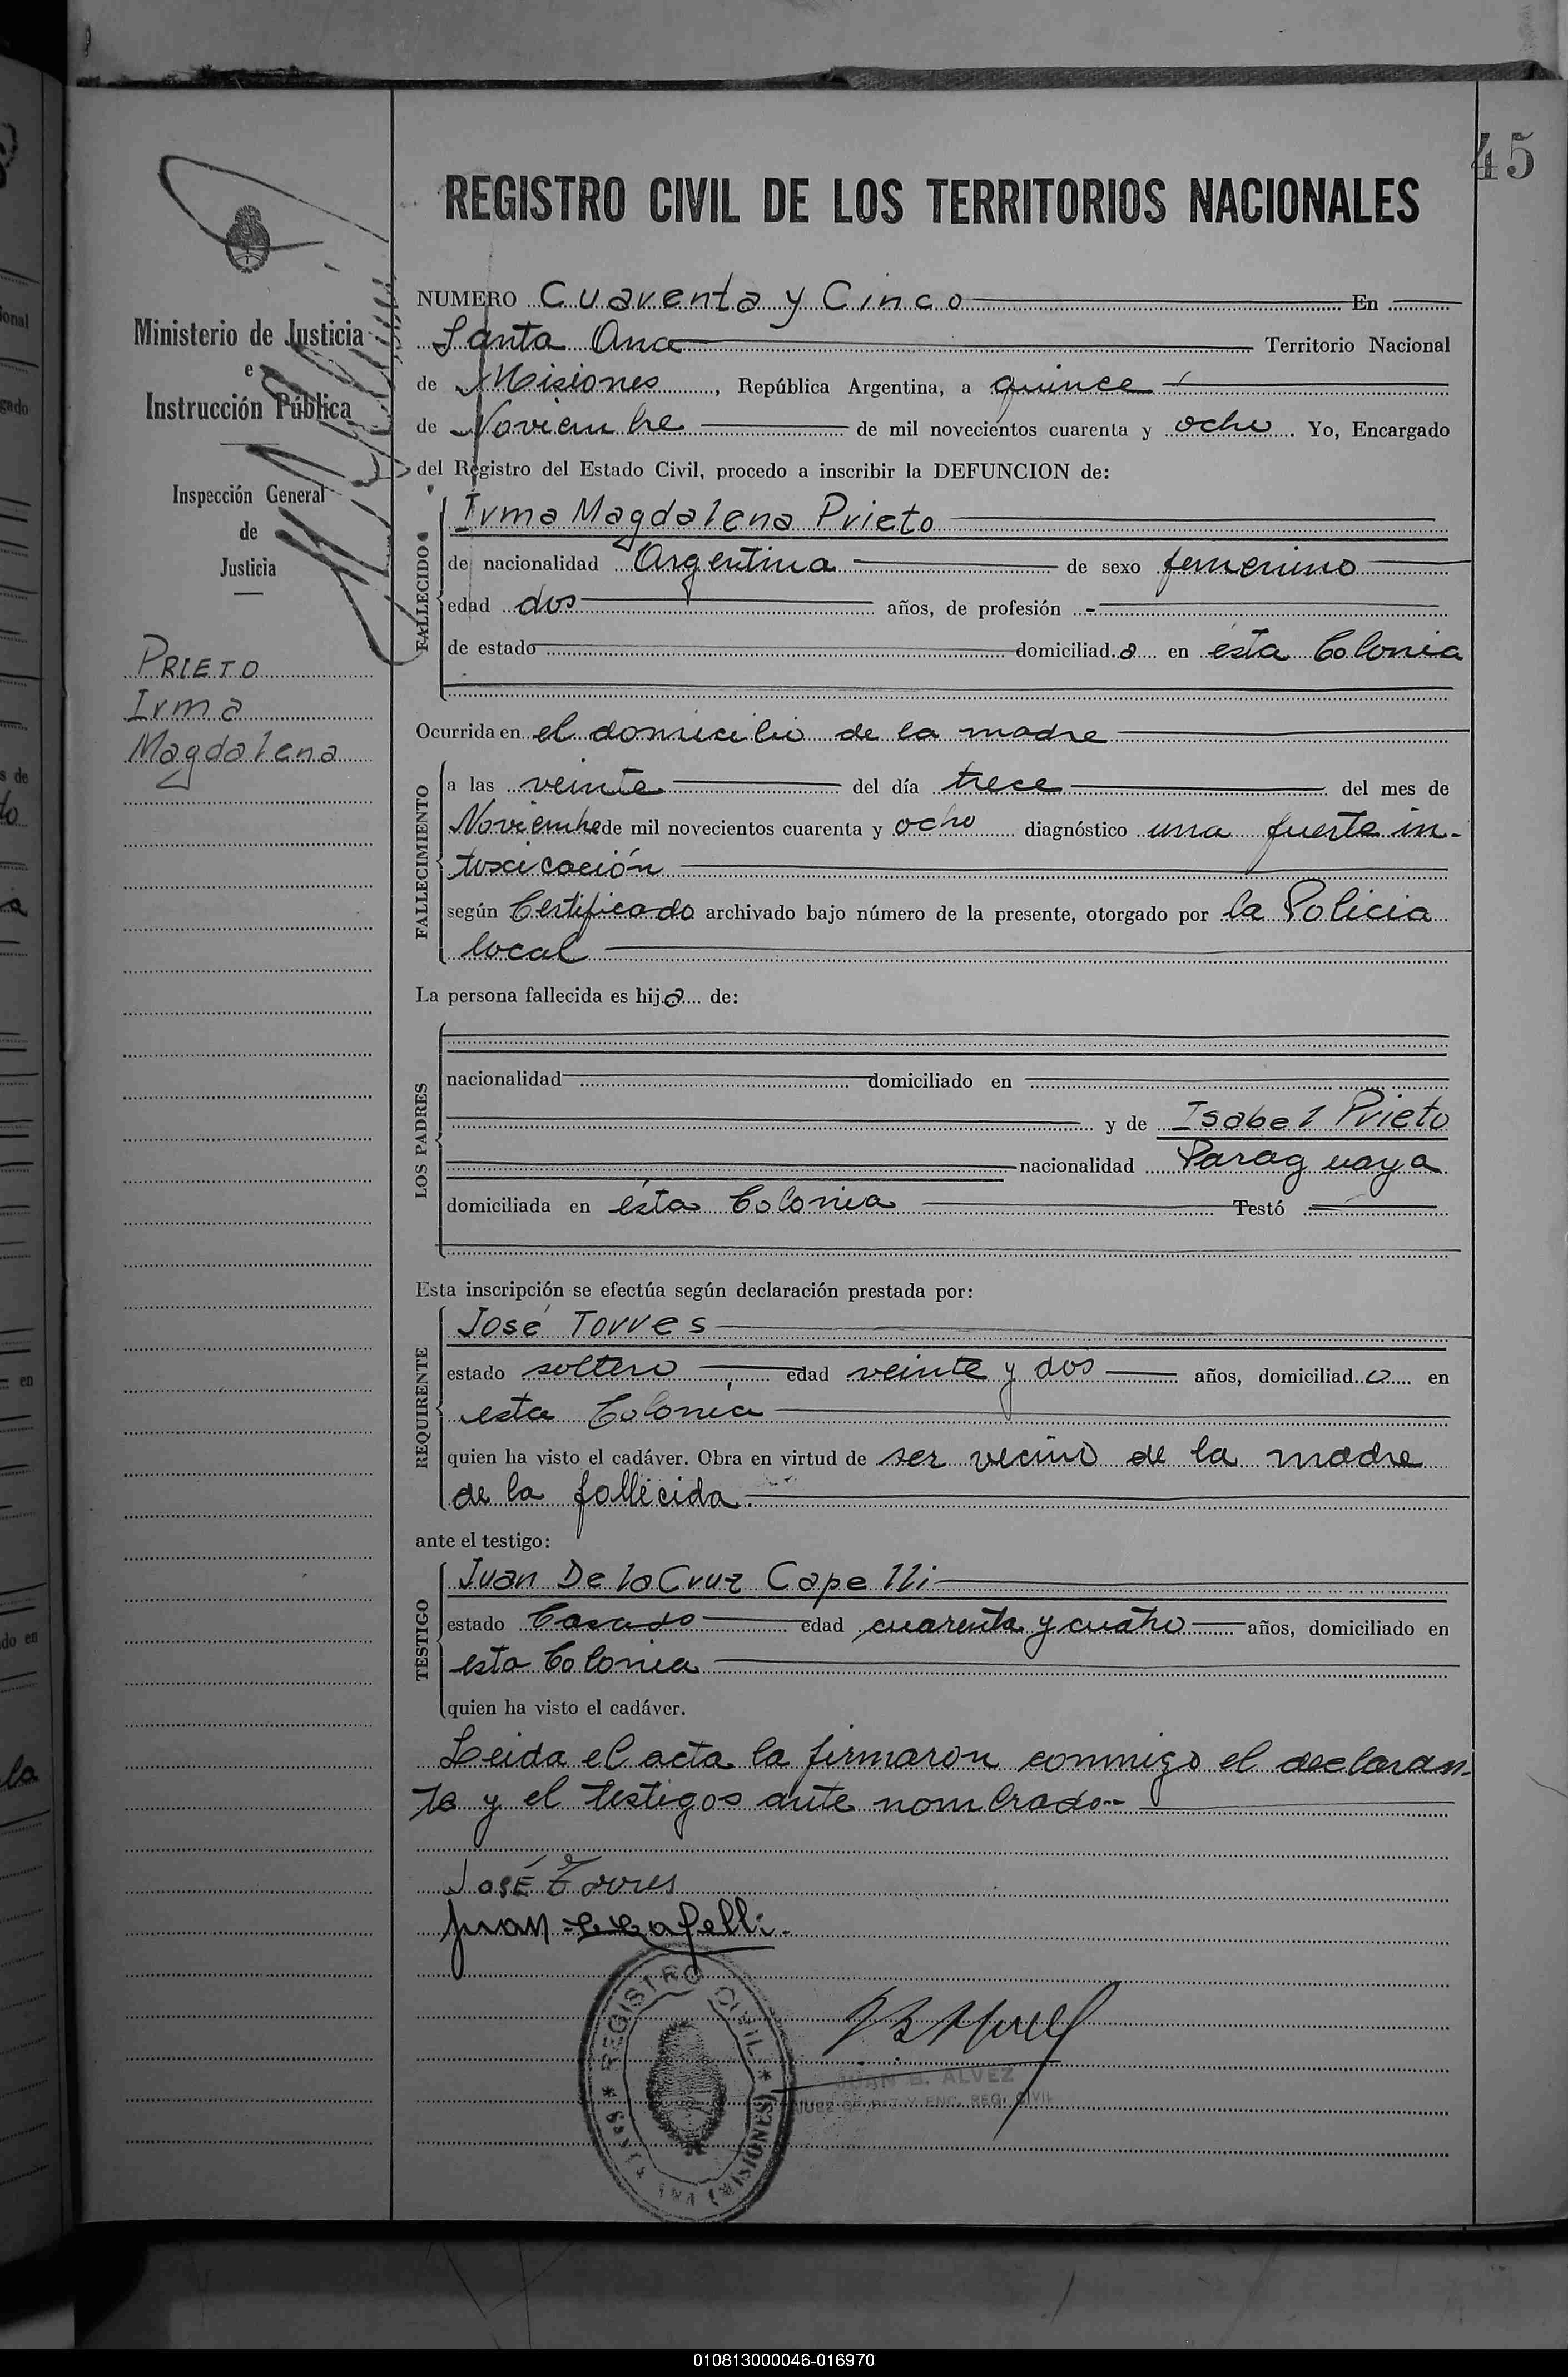 45
REGISTRO CIVIL DE LOS TERRITORIOS NACIONALES
Ministerio de Justicia
e
Instrucción Pública
Inspección General
de
Justicia
PRIETO
Irma
Magdalena
NUMERO Cuarenta y Cinco En
Santa Ana Territorio Nacional
de Misiones, República Argentina, a quince
de Noviembre de mil novecientos cuarenta y ocho. Yo, Encargado
del Registro del Estado Civil, procedo a inscribir la DEFUNCION de:
FALLECIDO
Irma Magdalena Prieto
de nacionalidad Argentina de sexo femenino
edad dos años, de profesión -
de estado domiciliada en esta Colonia
Ocurrida en el domicilio de la madre
FALLECIMIENTO
a las veinte del día trece del mes de
Noviembre de mil novecientos cuarenta y ocho diagnóstico una fuerte in-
toxicación
según Certificado archivado bajo número de la presente, otorgado por la Policia
local
La persona fallecida es hija de:
LOS PADRES
nacionalidad domiciliado en
y de Isabel Prieto
nacionalidad Paraguaya
domiciliada en ésta Colonia Testó
Esta inscripción se efectúa según declaración prestada por:
REQUIRENTE
José Torres
estado soltero edad veinte y dos años, domiciliado en
esta Colonia
quien ha visto el cadáver. Obra en virtud de ser vecino de la madre
de la fallecida.
ante el testigo:
TESTIGO
Juan De la Cruz Capelli
estado Casado edad cuarenta y cuatro años, domiciliado en
esta Colonia
quien ha visto el cadáver.
Leida el acta la firmaron conmigo el declaran-
te y el testigos ante nombrado--
José Torres
Juan Capelli.
REGISTRO CIVIL
SANTA ANA (MISIONES)
JUAN B. ALVEZ
JUEZ DE PAZ Y ENC. REG. CIVIL
010813000046-016970